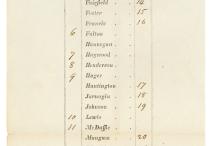 Fairfield . . 14
Foster . . 15
Francis . . 16
6 Fulton . .
Hannegan . .
7 Haywood . .
8 Henderson . .
9 Huger . .
Huntington . . 17
Jarnagin . . 18
Johnson . . 19
10 Lewis . .
11 McDuffie . .
Mangum . . 20